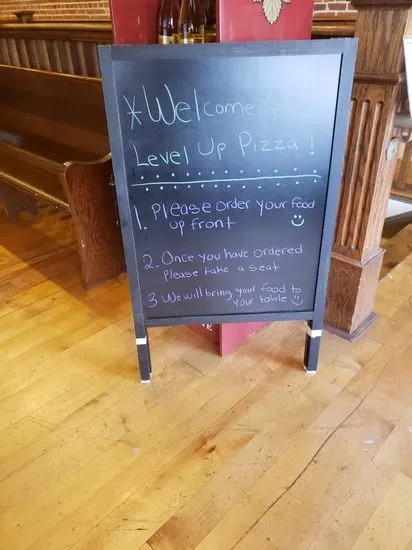 *Welcome
Level Up Pizza!
1. Please order your food
up front
2. Once you have ordered
Please take a seat
3 We will bring your food to
your table